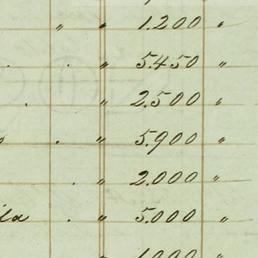 " " 1.200 "
. . " 5.450 "
. " 2.500 "
. " 5.900 "
. " 2.000 "
. " 5.000 "